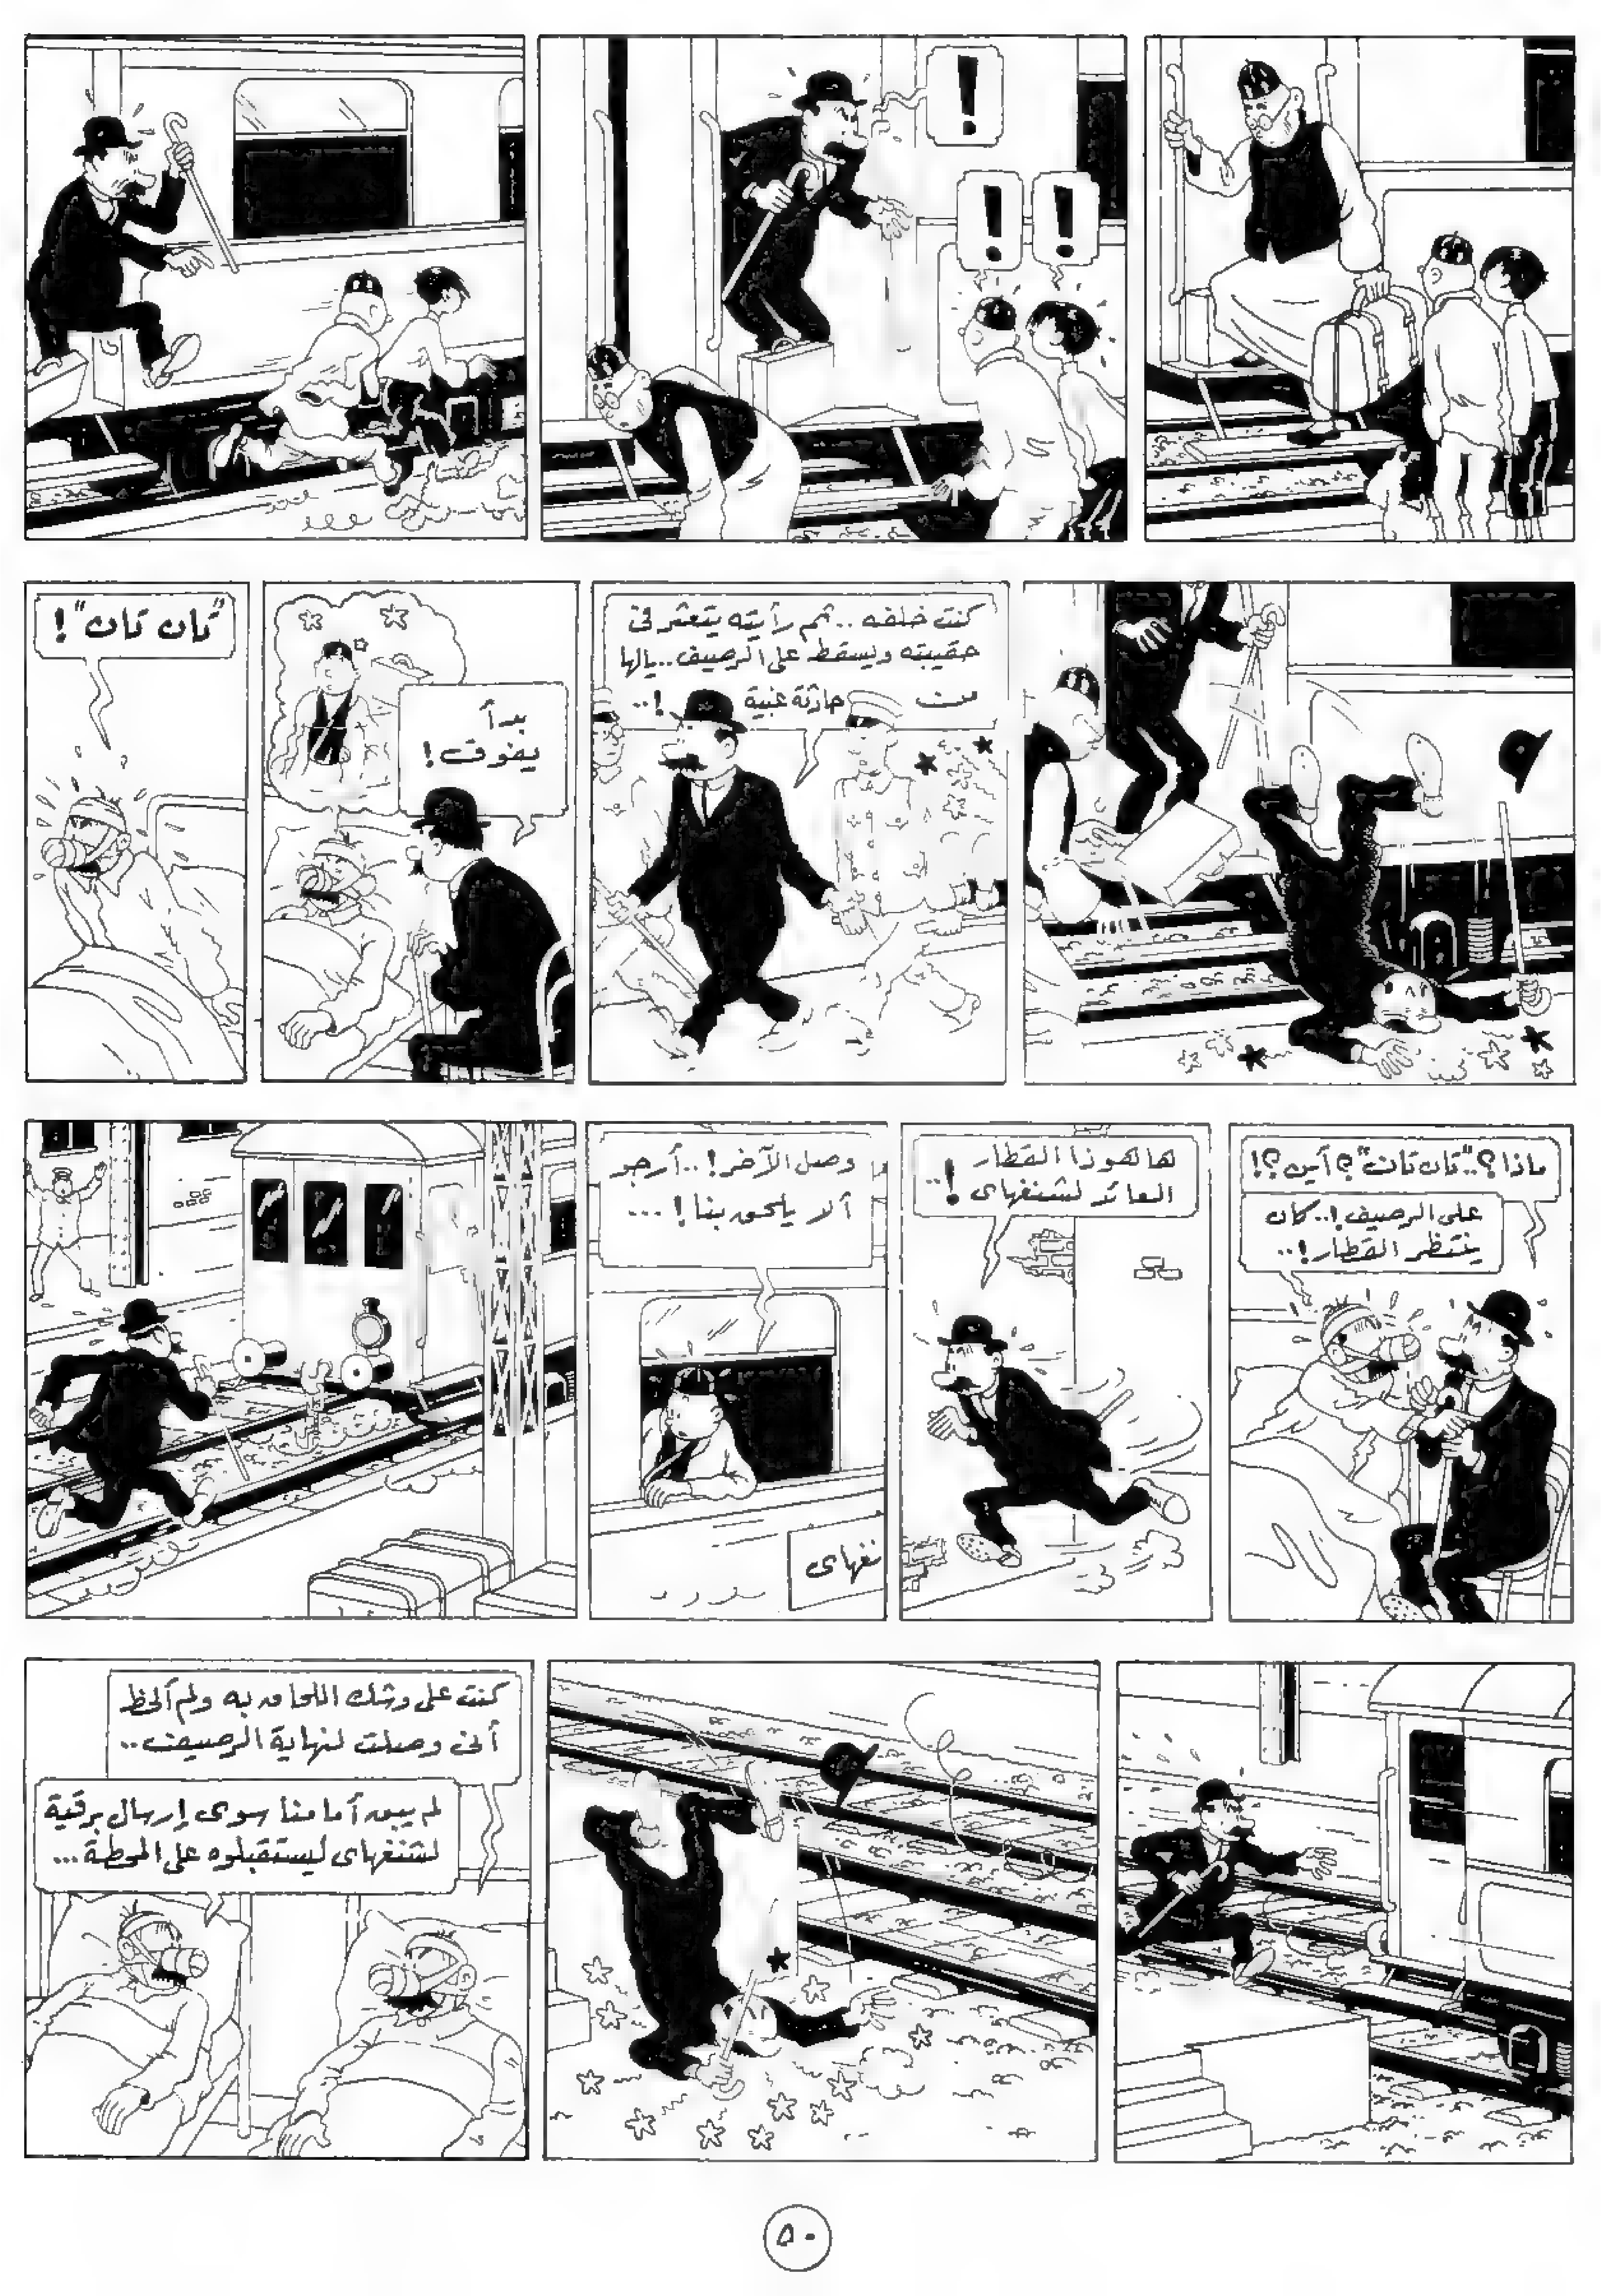 !
! !
كنت خلفه .. ثم رأيته يتعثر فى
حقيبته ويسقط على الرصيف .. يالها
من حادثة غبية !..
بدأ
يفوق !
"تان تان" !
ماذا ؟.. "تان تان" ؟ أين ؟!
على الرصيف !.. كان
ينتظر القطار !..
هاهوذا القطار
العائد لشنغهاى !..
وصل الآخر !.. أرجو
ألا يلحق بنا ! ...
نغهاى
كنت على وشك اللحاق به ولم ألحظ
أنى وصلت لنهاية الرصيف ..
لم يبق أمامنا سوى إرسال برقية
لشنغهاى ليستقبلوه على المحطة ...
٥٠